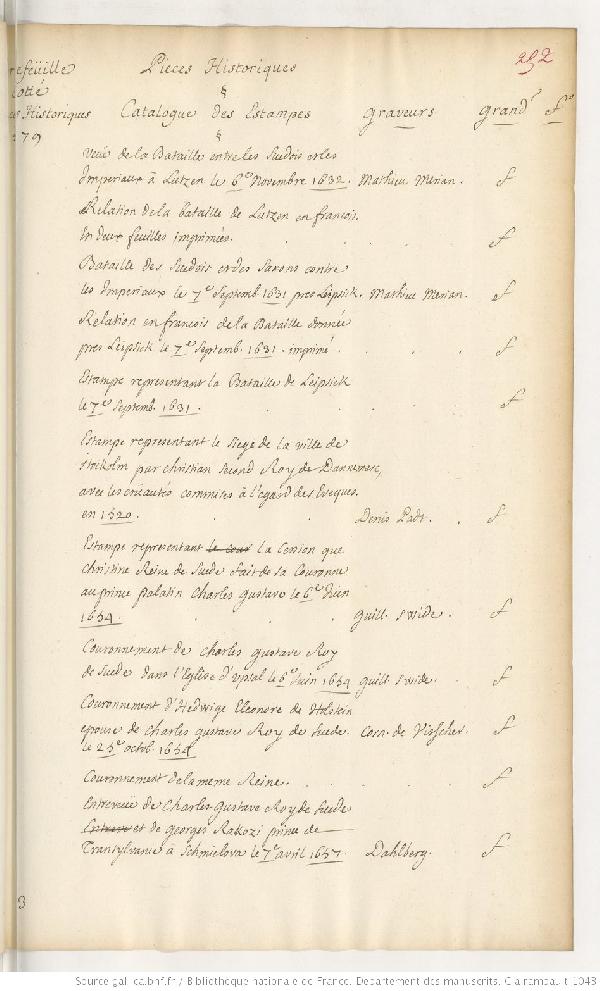 refeüille Pieces Historiques 252
cotté §
es Historiques Catalogue des Estampes graveurs grand.r f.o
279 §
Veüe de la Bataille entre les suedois et les
Imperiaux à Lutzen le 6.e Novembre 1632. Mathieu Merian. f
Relation de la bataille de Lutzen en francois.
In deux feuilles imprimées. f
Bataille des Suedois et des Saxons contre
les Imperiaux le 7.e Septemb. 1631 pres Leipsick. Mathieu Merian. f
Relation en francois de la Bataille donnée
pres Leipsick le 7.e Septemb. 1631. imprimé. f
Estampe representant la Bataille de Leipsick
le 7.e Septemb. 1631. f
Estampe representant le siege de la ville de
stockolm par christian second Roy de Dannemarc,
avec les cruautés commises à l'egard des Eveques.
en 1520. Denis Padt. f
Estampe representant le cour la Cession que
christine Reine de suede fait de sa Couronne
au prince palatin Charles gustave le 6.e Juin
1654. guill. swide. f
Couronnement de charles gustave Roy
de suede dans l'Eglise d'Upsal le 6.e Juin 1654 guill. swide. f
Couronnement d'Hedwige Eleonore de Holstein
epouse de charles gustave Roy de suede. Corn. de Visscher. f
le 25.e octob. 1654
Couronnement de la meme Reine. f
Entreveüe de Charles Gustave Roy de suede
et de georges Rakozi prince de
Transylvanie à Schmielova le 7.e avril 1657. Dahlberg. f
3
Source gallica.bnf.fr / Bibliothèque nationale de France. Département des manuscrits. Clairambault 1043